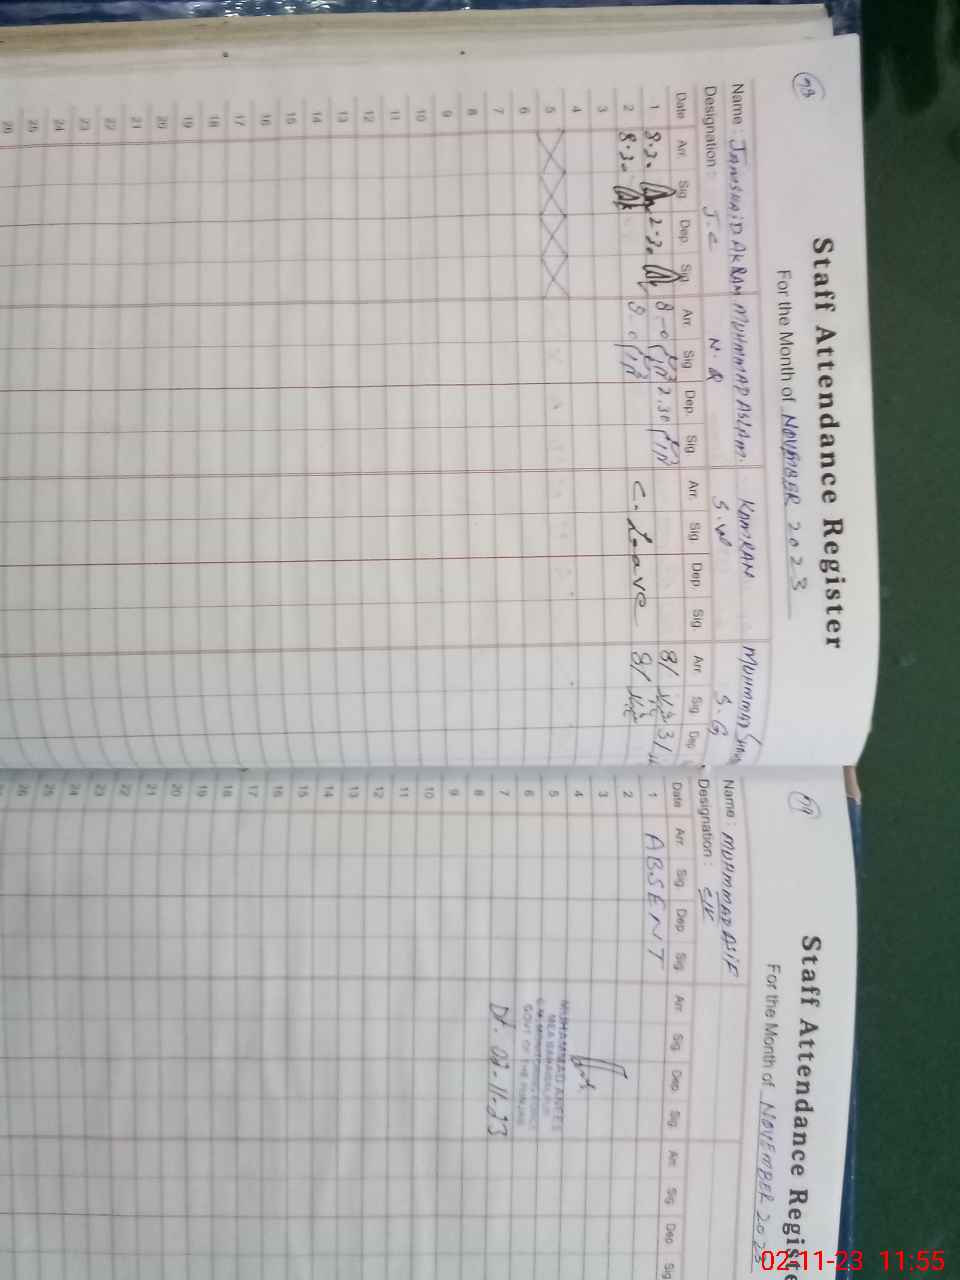 78
Staff Attendance Register
For the Month of NOVEMBER 2023
Name : JAMSHAID AKRAM MUHMMAD ASLAM. KAMRAN MUHMMAD
Designation : J.C N.Q S.W S.G
Date Arr. Sig Dep. Sig Arr. Sig Dep. Sig Arr. Sig Dep Sig. Arr Sig Dep
1 8.20 2.30 8-0 2.30 8/ 3/
2 8.20 8-0 C. Leave 8/
3
4
5
6
7
8
9
10
11
12
13
14
15
16
17
18
19
20
21
22
23
24
25
26
79
Staff Attendance Registe
For the Month of NOVEMBER 2023
Name : MUHMMAD ASIF
Designation :
Date Arr. Sig Dep Sig. Arr Sig Dep Sig Arr Sig Dep Sig
1 ABSENT
2
3
4
5
6
7
8
9
10
11
12
13
14
15
16
17
18
19
20
21
22
23
24
25
26
MUHAMMAD ANEES
GOVT OF THE PUNJAB
Dt. 02-11-23
02-11-23 11:55